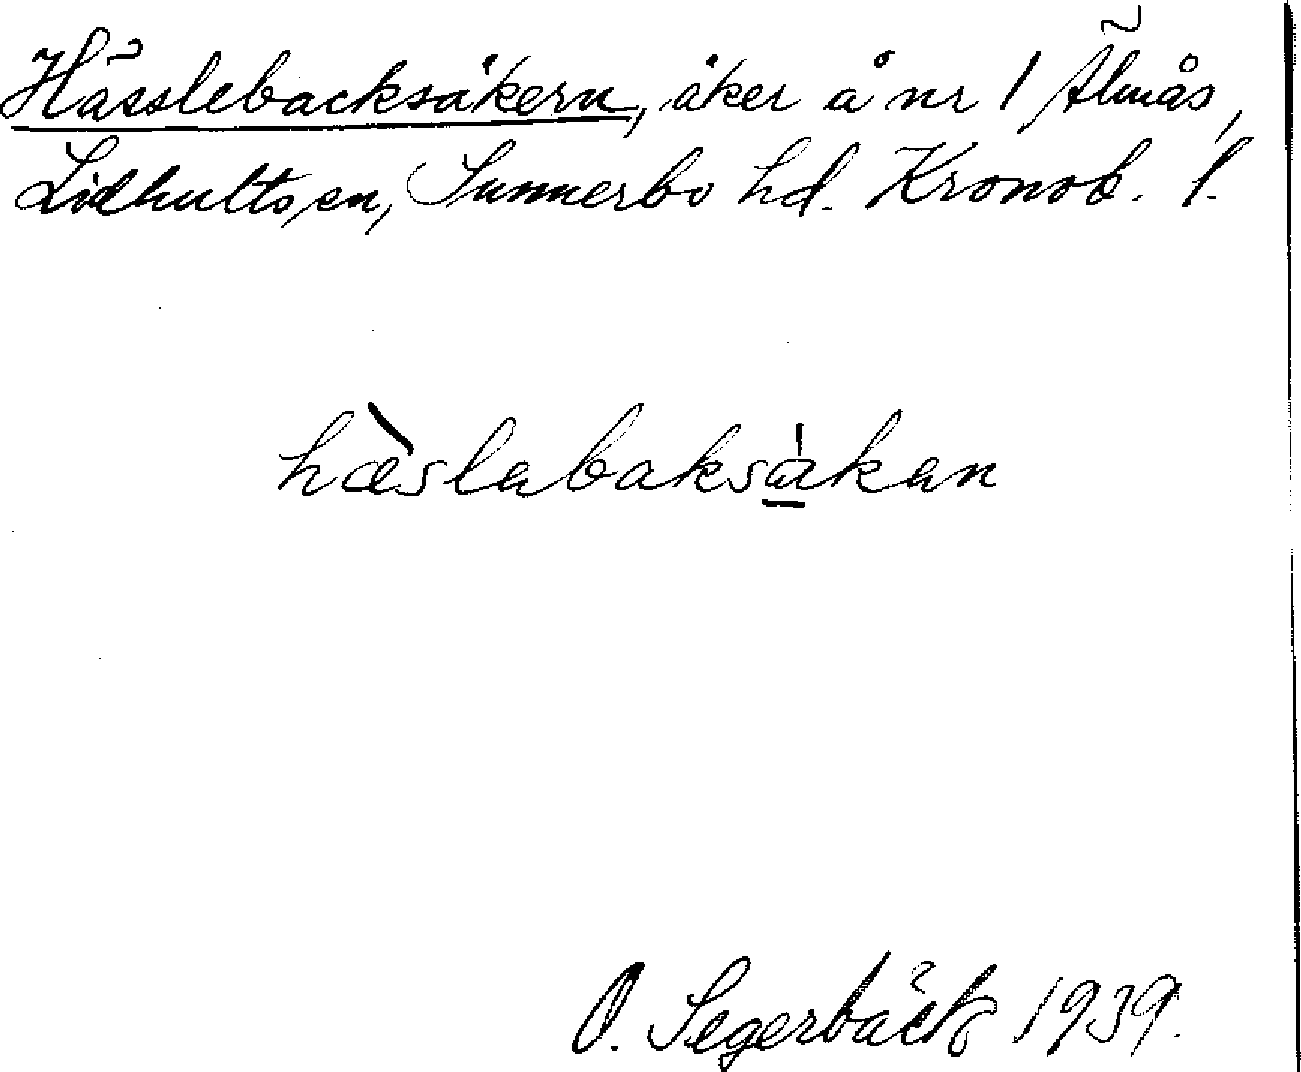 Hässlebacksåkern, åker å nr 1 Älmås,
Lidhults sn, Sunnerbo hd. Kronob. l.
hæslabaksåkan
O. Segerbäck 1939.